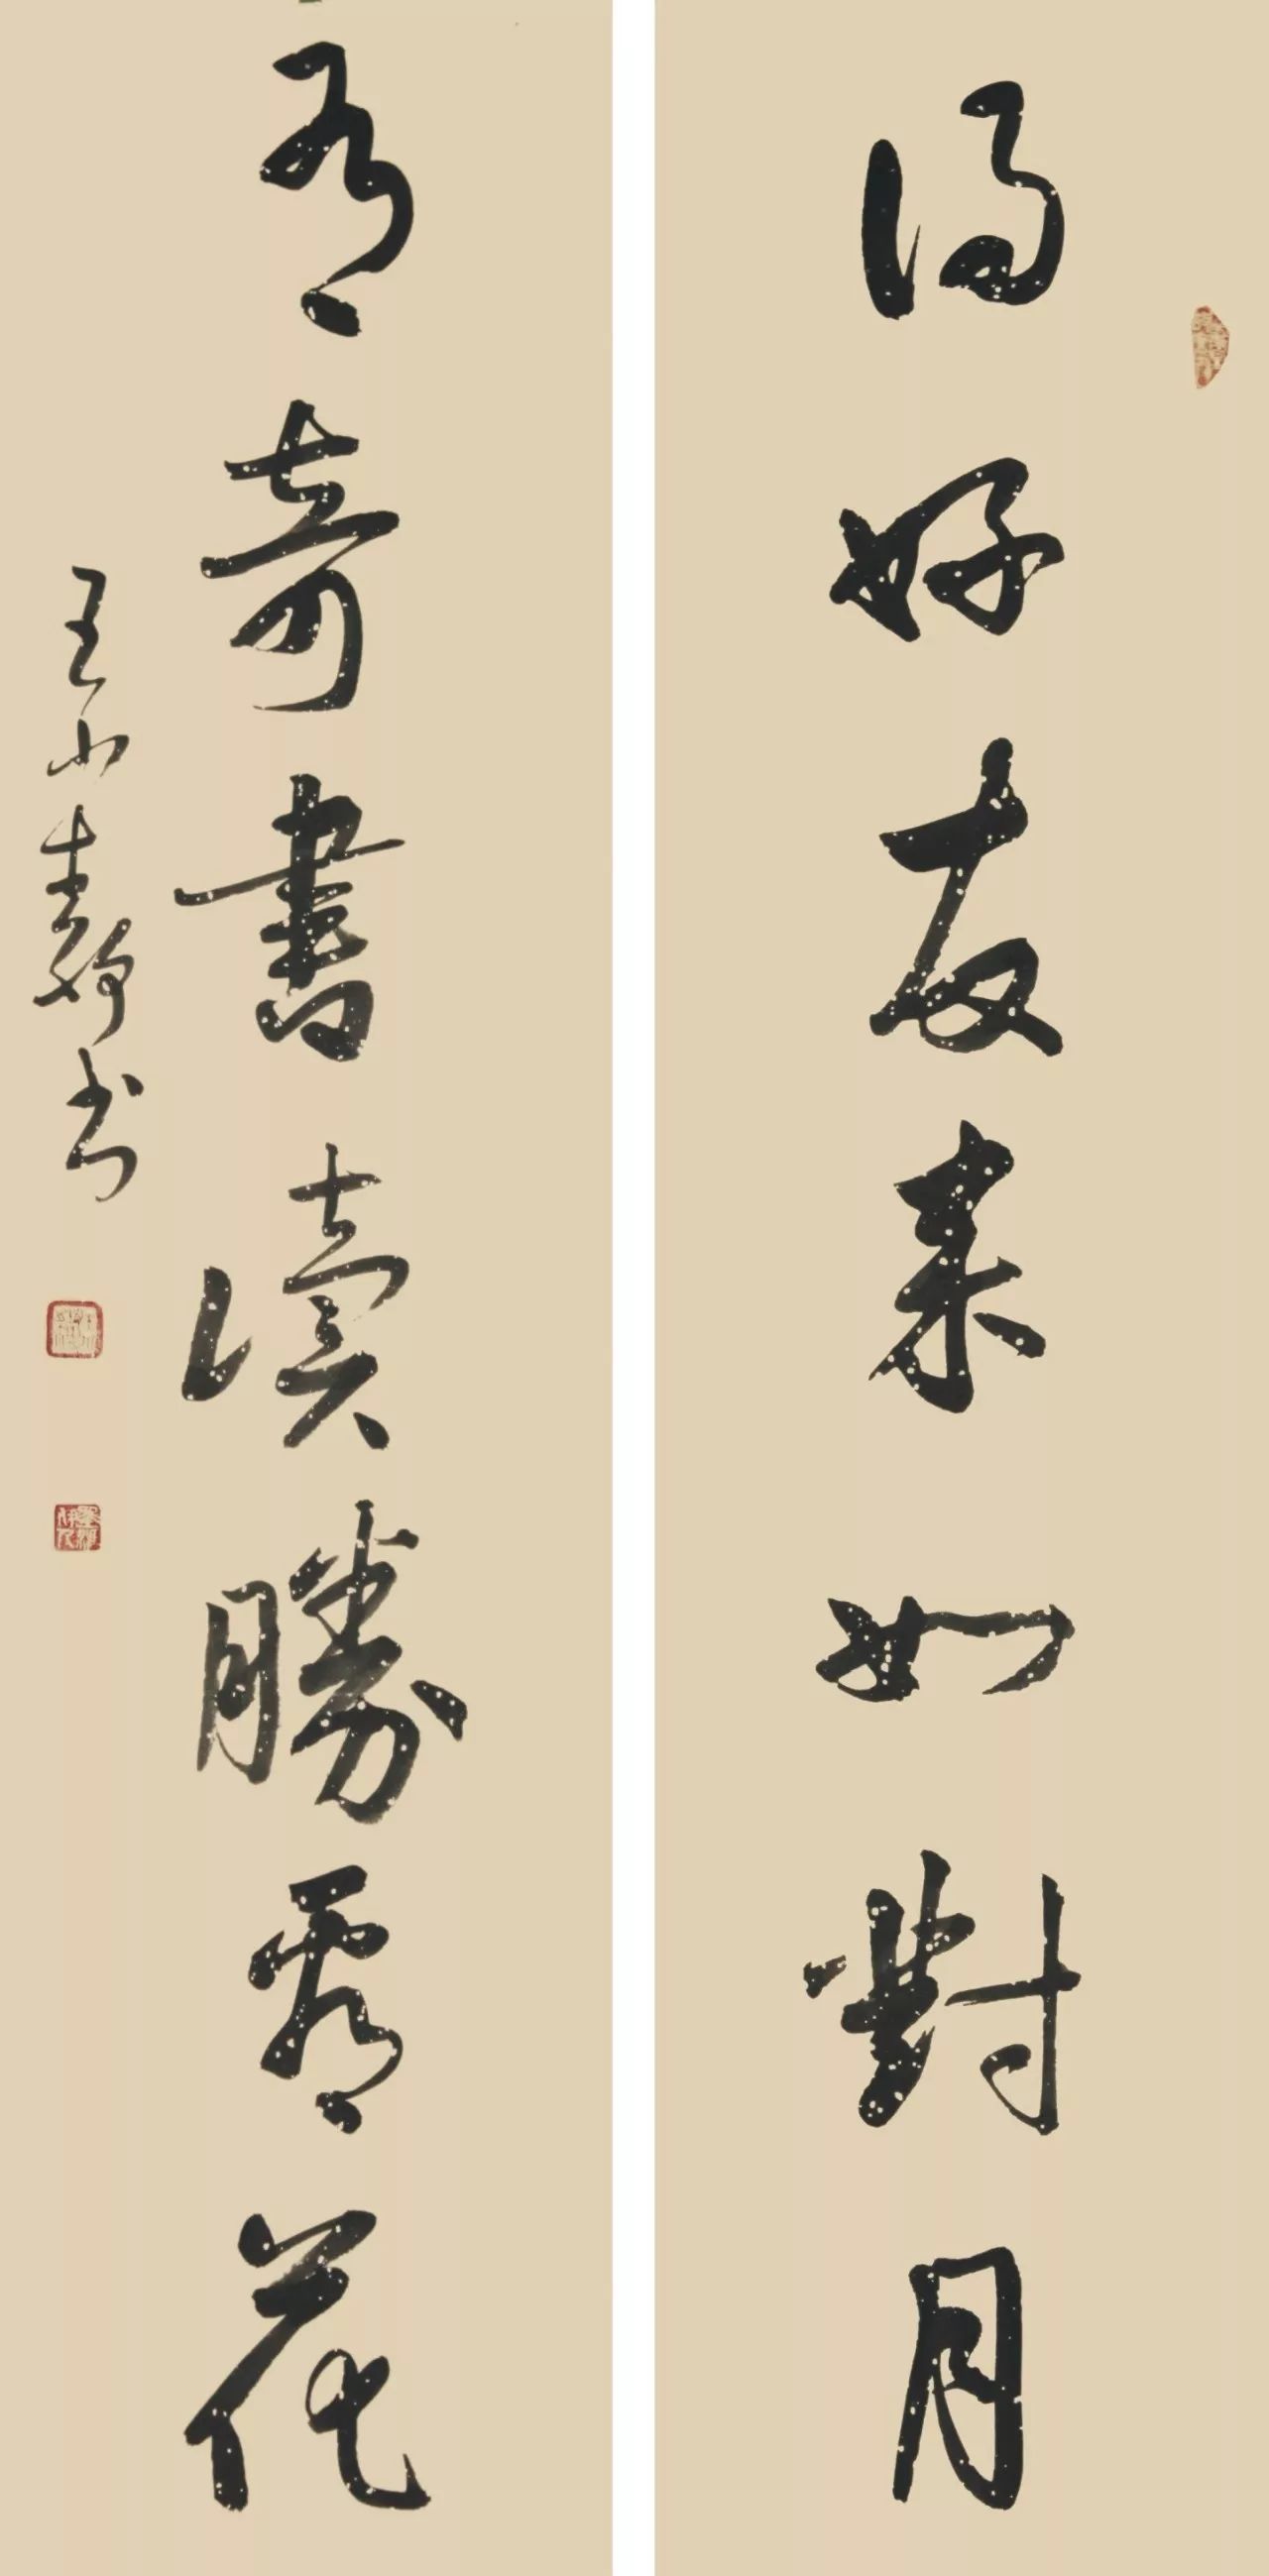 得好友来如對月
有奇書讀勝看花
王小静书